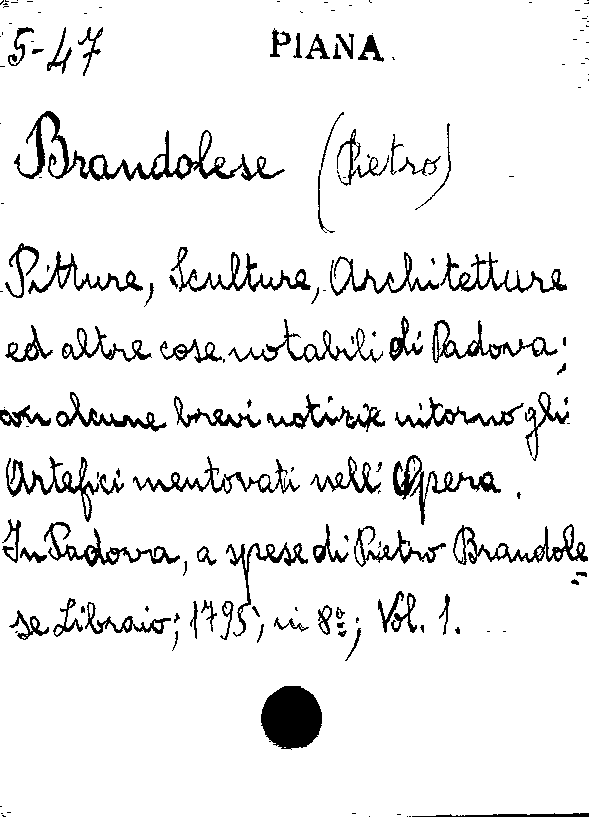 5-47 PIANA
Brandolese (Pietro)
Pitture, Sculture, Architetture
ed altre cose notabili di Padova;
con alcune brevi notizie intorno gli
Artefici mentovati nell' Opera.
In Padova, a spese di Pietro Brandole=
se Libraio; 1795; in 8º; Vol. 1.